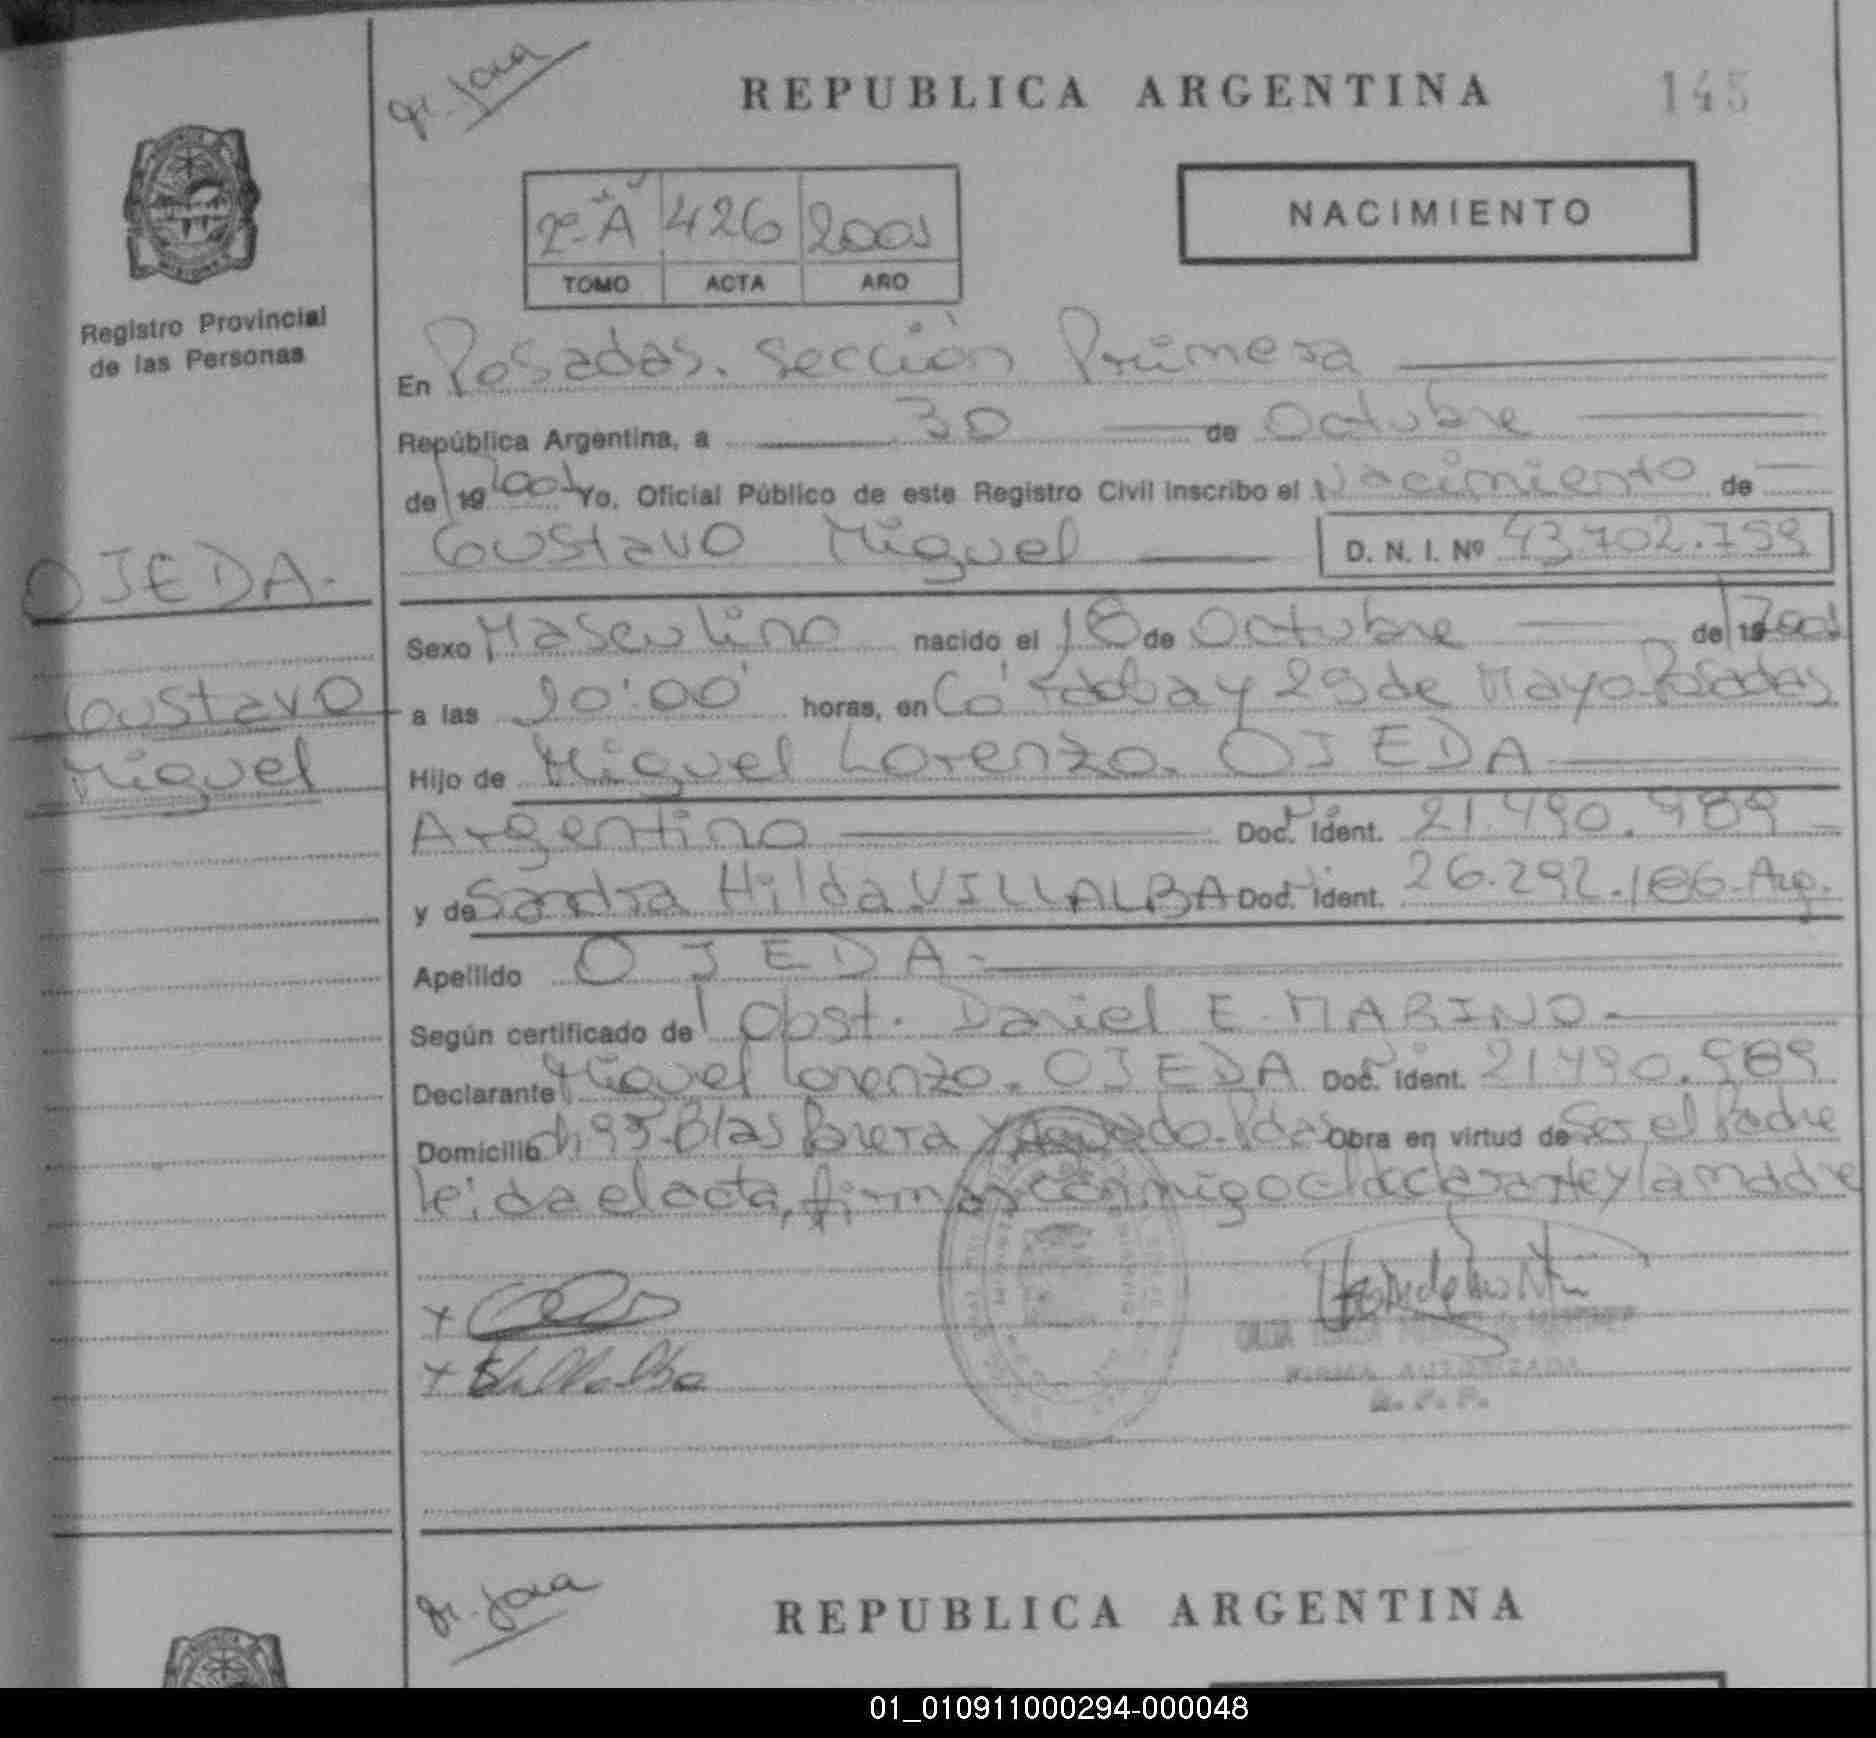 gr. jara
REPUBLICA ARGENTINA
145
2º A 426 2001
TOMO ACTA AÑO
NACIMIENTO
Registro Provincial
de las Personas
En Posadas. sección Primera
República Argentina, a 30 de Octubre
de 19 2001 Yo, Oficial Público de este Registro Civil inscribo el Nacimiento de
Gustavo Miguel D. N. I. Nº 43.702.759
OJEDA.
Gustavo
Miguel
Sexo Masculino nacido el 18 de Octubre de 19 2001
a las 20:00 horas, en Córdoba y 29 de Mayo Posadas
Hijo de Miguel Lorenzo. OJEDA
Argentino Doc. Ident. 21.490.989
y de Sandra Hilda VILLALBA Doc. Ident. 26.292.186 Arg.
Apellido OJEDA.
Según certificado de Obst. Daniel E. MARINO.
Declarante Miguel Lorenzo. OJEDA Doc. Ident. 21.490.989
Domicilio ch. 95. Blas Parera y Aguado. Pdas Obra en virtud de Ser el Padre
leida el acta, firman conmigo el declarante y la madre
FIRMA AUTORIZADA
R. P. P.
gr. jara
REPUBLICA ARGENTINA
01_010911000294-000048